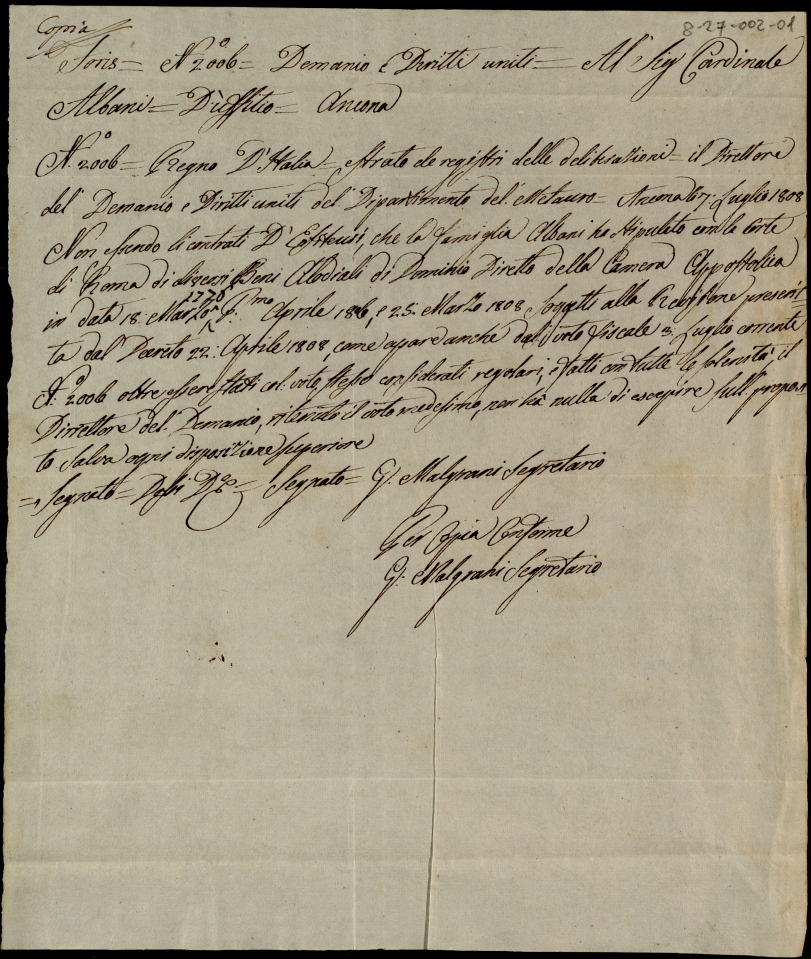 Copia
8-27-002-01
Foris = N.º 2006 = Demanio e Diritti uniti = Al Sig Cardinale
Albani = D'uffitio = Ancona
N.º 2006 = Regno D'Italia = estrato de registri delle deliberazioni = il Direttore
del Demanio e Diritti uniti del Dipartimento del Metauro = Ancona 67: Luglio 1808
Non essendo li contrati D'Enfiteusi, che la famiglia Albani ha stipulato con la Corte
di Roma di diversi Beni Alodiali di Dominio Diretto della Camera Appostolica
1770
in data 18: Marzo ^ P:mo Aprile 1806, e 25: Marzo 1808 Soggetti alla Revisione prescrit
ta dal Decreto 22: Aprile 1808, come apare anche dal voto fiscale 3: Luglio corrente
N.º 2006 oltre essere stati col voto stesso considerati regolari, e fatti con tutte le solennità, il
Dirrettore del Demanio, ritenuto il voto medesimo, non hà nulla di eccepire sull' propos
to Salva ogni disposizione superiore
= Segnato = = Segnato = G: Malgrani Segretario
Per Copia Conforme
G: Malgrani Segretario